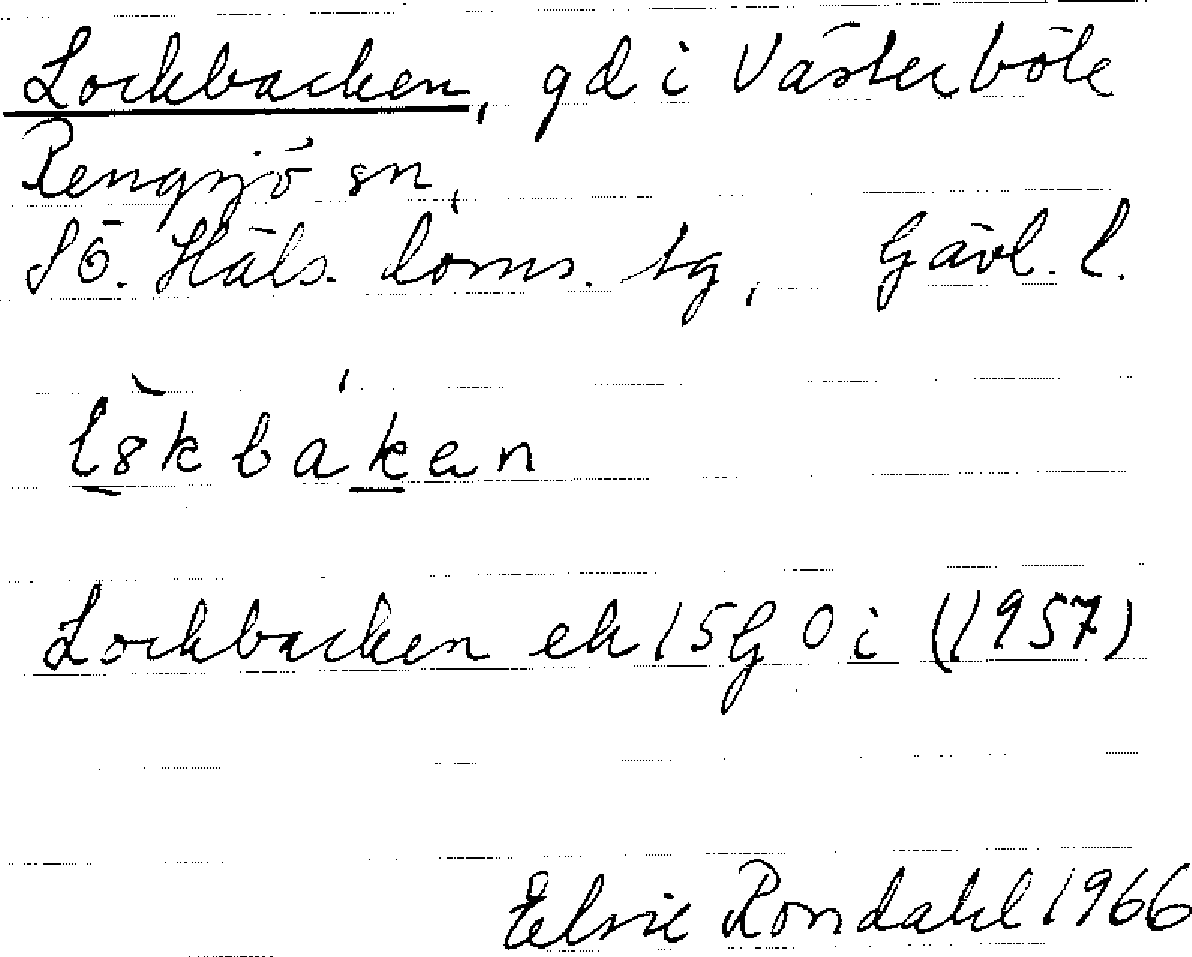 Lockbacken, gd i Västerböle
Rengsjö sn,
SÖ. Häls. doms. tg, Gävl. l.
Lockbacken ek 15G 0 i (1957)
Elsie Rondahl 1966